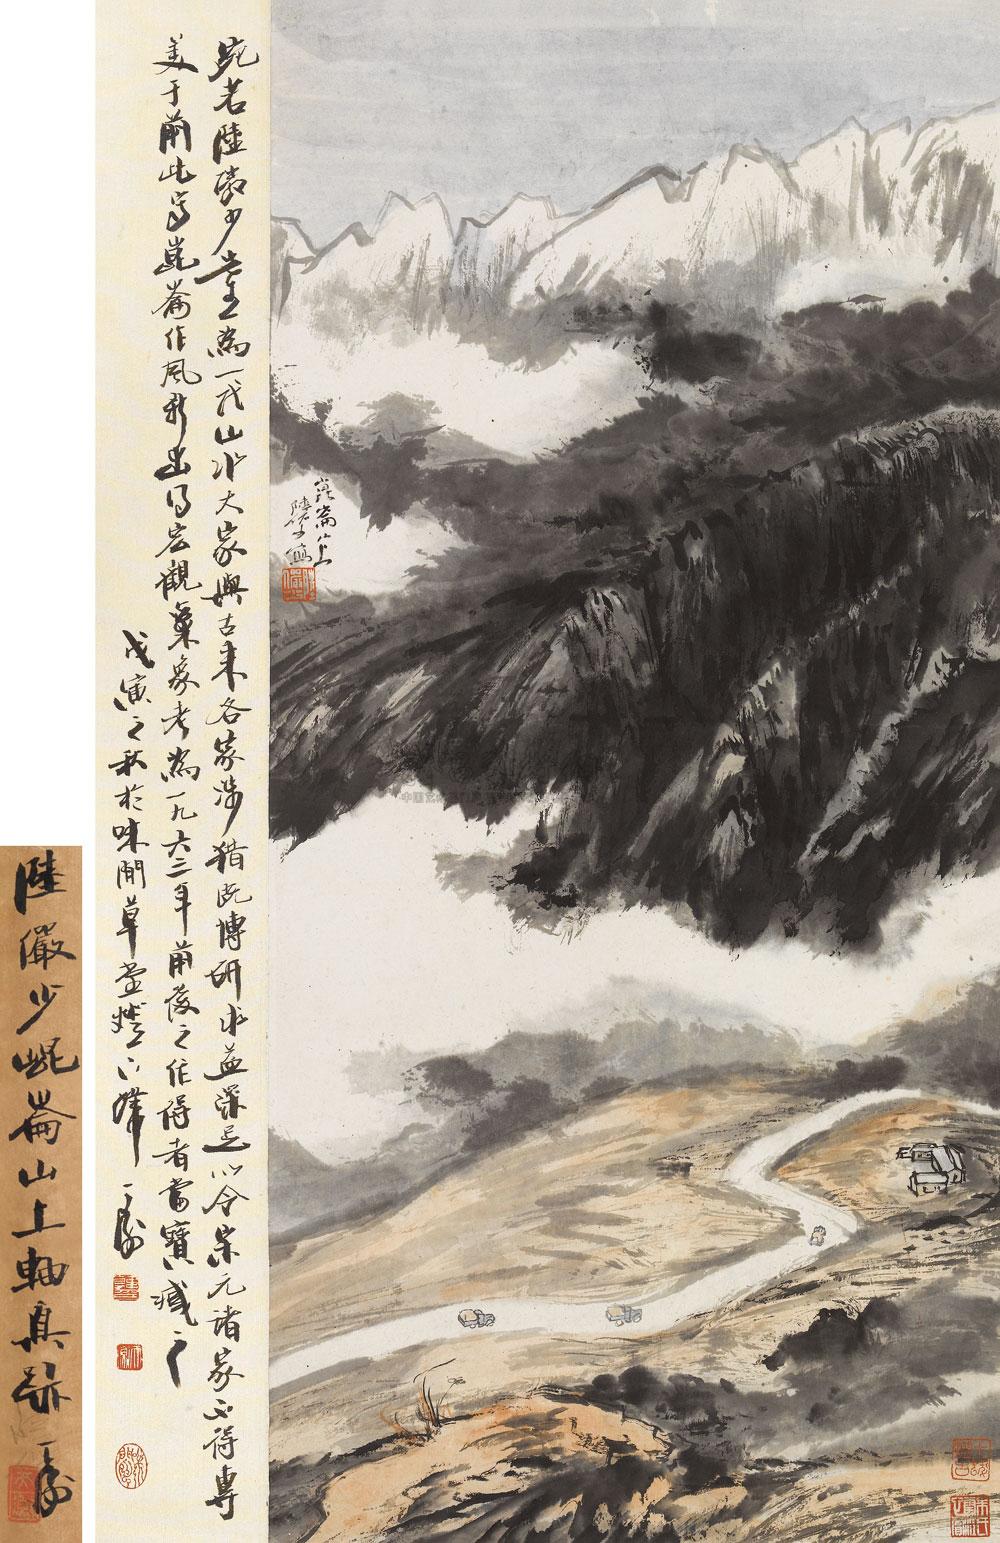 宛若陸儼少先生為一代山水大家與古來各家涉獵既博研求益深足以令宋元諸家不得專
美于前此寫崑崙作風新出得宏觀氣象考為一九六二年前後之作得者當寶藏之
戊寅之秋於味閒草堂燈下
崑崙山上
陸儼少寫
陸儼少崐崙山上軸真跡